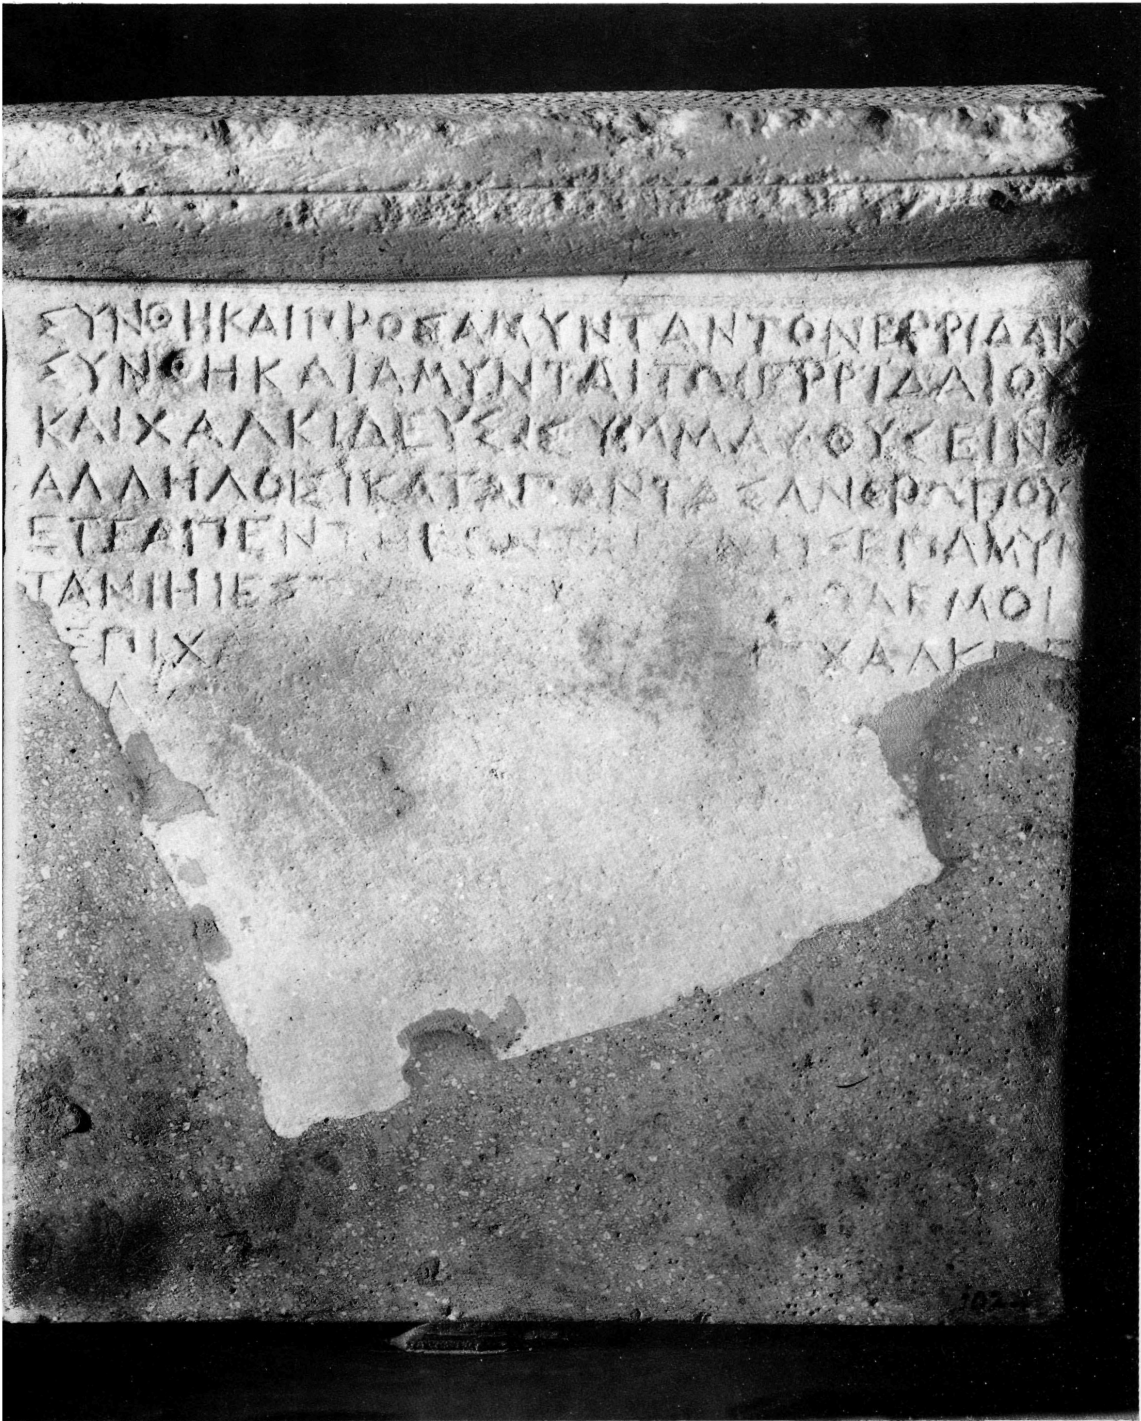 ΣΥΝΘΗΚΑΙΠΡΟΣΑΜΥΝΤΑΝΤΟΝΕΡΡΙΔΑΙΟ
ΣΥΝΘΗΚΑΙΑΜΥΝΤΑΙΤΩΙΕΡΡΙΔΑΙΟΥ
ΚΑΙΧΑΛΚΙΔΕΥΣΙΣΥΜΜΑΧΟΥΣΕΙΝ
ΑΛΛΗΛΟΙΣΙΚΑΤΑΠΑΝΤΑΣΑΝΘΡΩΠΟΥ
ΕΤΕΑΠΕΝΤΗΚΟΝΤΑ ΣΕΠΑΜΥΝ
ΤΑΝΙΗΙΕΣ ΟΛΕΜΟΙ
ΕΠΙΧ ΧΑΛΚ